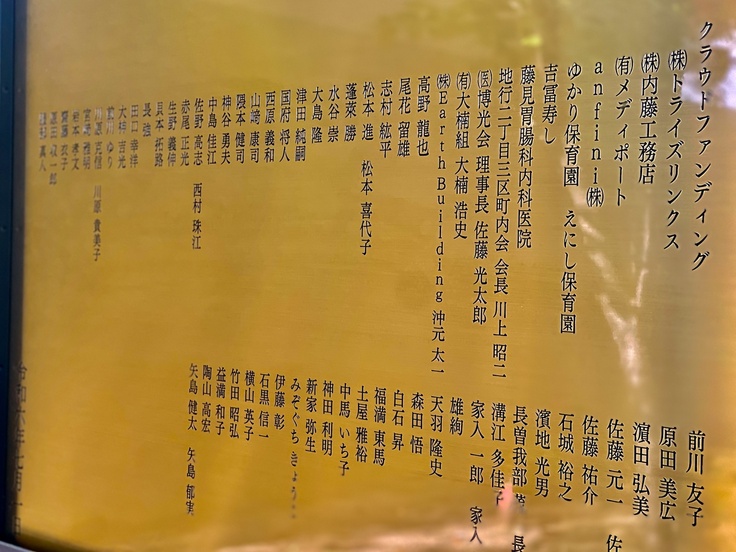 クラウトファンディング
㈱トライズリンクス
㈱内藤工務店
㈲メディポート
anfini㈱
ゆかり保育園 えにし保育園
吉冨寿し
藤見胃腸科内科医院
地行二丁目三区町内会 会長 川上 昭二
㈩博光会 理事長 佐藤 光太郎
㈲大楠組 大楠 浩史
㈱EarthBuilding 沖元 太一
高野 龍也
尾花 留雄
志村 紘平
松本 進 松本 喜代子
蓬莱 勝
水谷 崇
大島 隆
津田 純嗣
国府 将人
西原 義和
山﨑 康司
隈本 健司
神谷 勇夫
中島 佳江
佐野 高志 西村 珠江
赤尾 正光
生野 義伸
貝本 拓路
長 強
田口 幸洋
川原 貴美子
宮﨑 雅明
前川 友子
原田 美広
濵田 弘美
佐藤 元一
佐藤 祐介
石城 裕之
濵地 光男
長曽我部
溝江 多佳子
家入 一郎 家入
雄絢
天羽 隆史
森田 悟
白石 昇
福満 東馬
土屋 雅裕
中馬 いち子
神田 利明
新家 弥生
みぞぐち
伊藤 彰
石黒 信一
横山 英子
竹田 昭弘
益満 和子
陶山 高宏
矢島 健太 矢島 郁実
令和六年七月